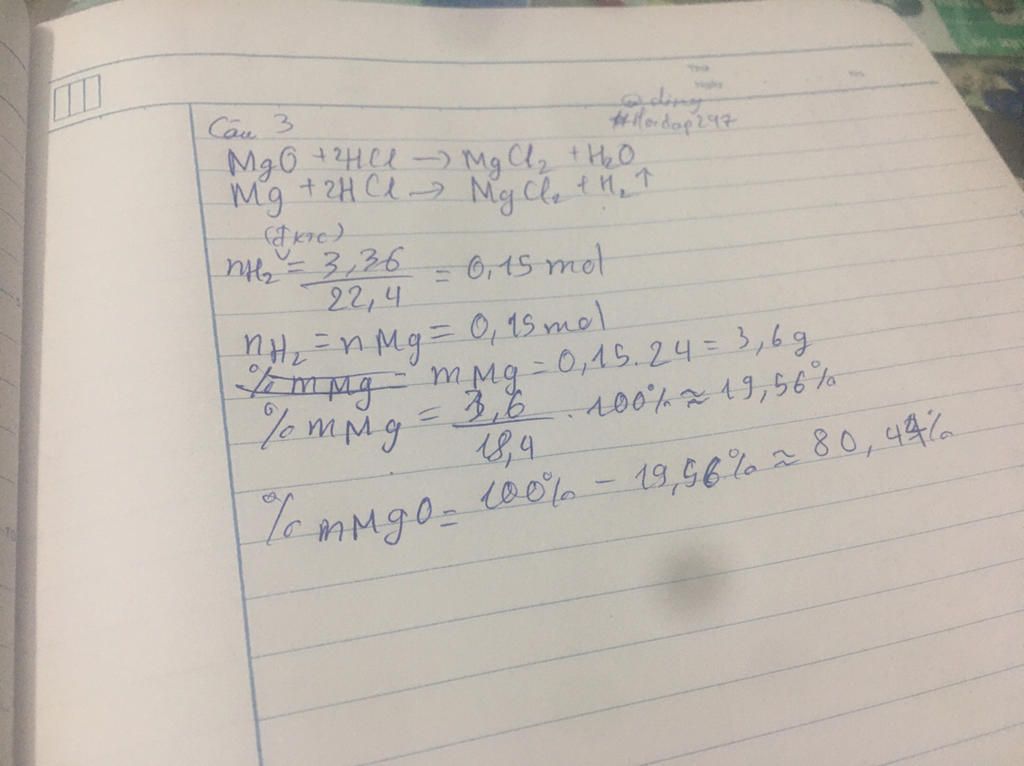 @dimy
#Hoidap247
Câu 3
MgO + 2HCl → MgCl₂ + H₂O
Mg + 2HCl → MgCl₂ + H₂↑
(đktc)
nH₂ = 3,36 / 22,4 = 0,15 mol
nH₂ = nMg = 0,15 mol
% mMg = mMg = 0,15.24 = 3,6g
% mMg = 3,6 / 18,4 . 100% ≈ 19,56%
% mMgO = 100% - 19,56% ≈ 80,44%